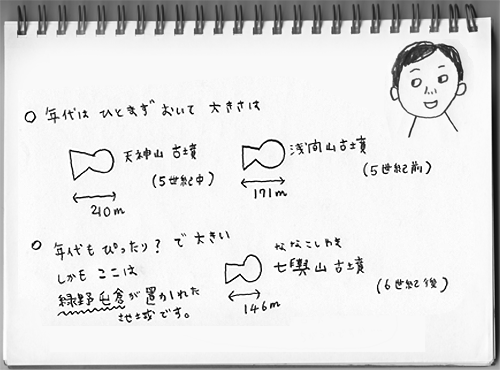 ○ 年代は ひとまず おいて 大きさは
天神山 古墳
(5世紀中)
210m
浅間山古墳
(5世紀前)
171m
○ 年代も ぴったり? で 大きい
しかも ここは
緑野屯倉が置かれた
地域です。
ななこしやま
七輿山 古墳
(6世紀後)
146m